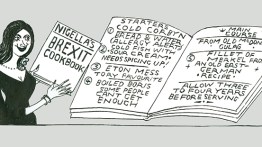 NIGELLA'S
BREXIT
COOKBOOK
STARTERS
① COLD CORBYN
② BREAD & WATER
(ALLERGY ALERT)
COLD FISH WITH
SOUR CREAM
NEEDS SPICING UP!
③ ETON MESS
TORY FAVOURITE
④ BOILED BORIS
SOME PEOPLE
CAN'T GET
ENOUGH
MAIN
COURSE
FROM OLD
GULAG
⑤ FILLET OF
MERKEL FROM
ANGLO
GERMAN
RECIPE
ALLOW THREE
TO FOUR YEARS
BEFORE SERVING